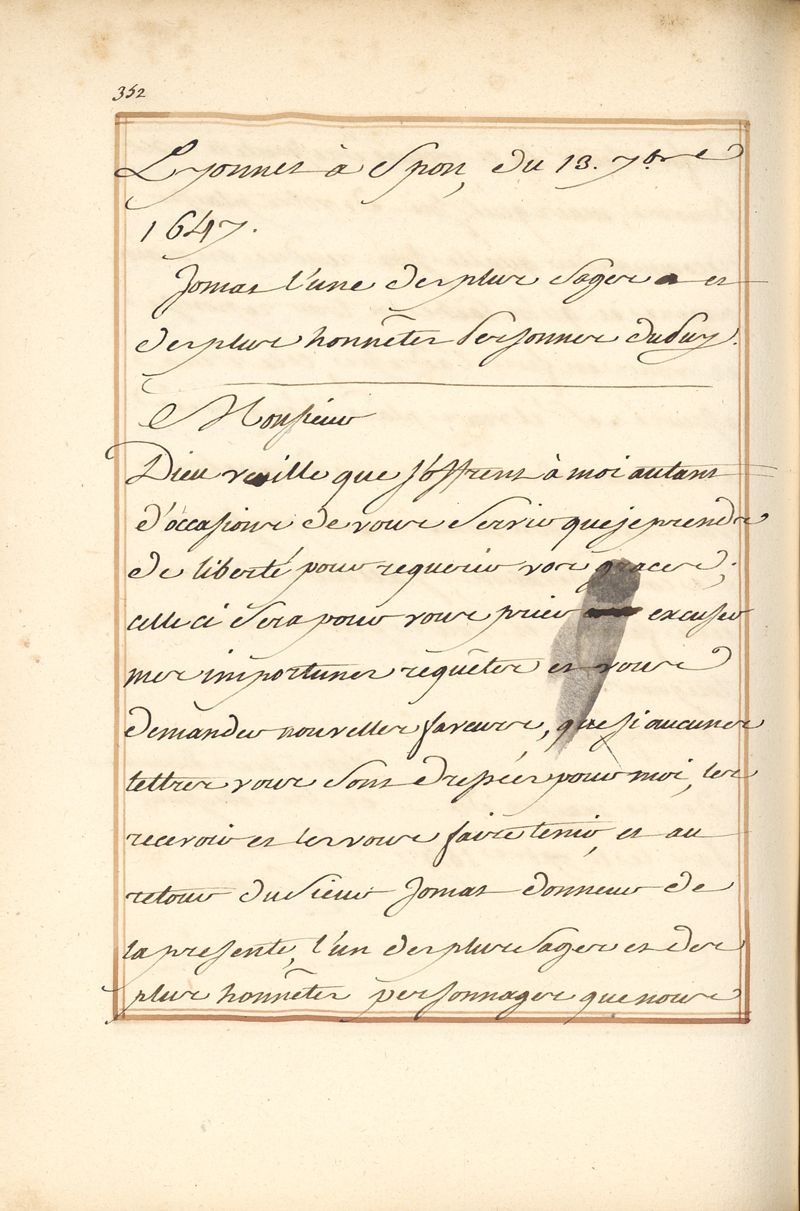 352
Lyonnet à Spon, du 13. 7bre
1647.
Jomat l'une des plus sages et
des plus honnêtes Personnes du Puy.
Monsieur
Dieu veuille que s'offrent à moi autant
d'occasions de vous servir que je prends
de liberté pour requerir vos graces;
celle ci sera pour vous prier excuser
mes importunes requêtes et vous
demander nouvelles faveurs, que si aucunes
lettres vous sont adressées pour moi, les
recevoir et les vous faire tenir, et au
retour du Sieur Jomat donneur de
la presente, l'un des plus sages et des
plus honnêtes personnages que nous